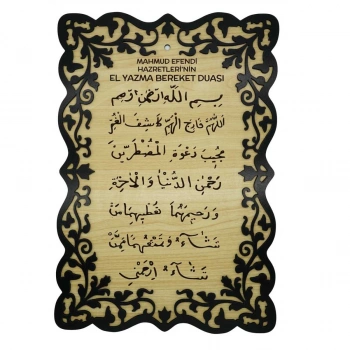 MAHMUD EFENDİ
HAZRETLERİ'NİN
EL YAZMA BEREKET DUASI
بِسْمِ اللّٰهِ الرَّحْمٰنِ الرَّحِيمِ
اَللّٰهُمَّ فَارِجَ الْهَمِّ كَاشِفَ الْغَمِّ
مُجِيبَ دَعْوَةِ الْمُضْطَرِّينَ
رَحْمٰنَ الدُّنْيَا وَالْاٰخِرَةِ
وَرَحِيمَهُمَا تُعْطِيهِمَا مَنْ
تَشَاءُ وَتَمْنَعُهُمَا مِمَّنْ
تَشَاءُ ارْحَمْنِي